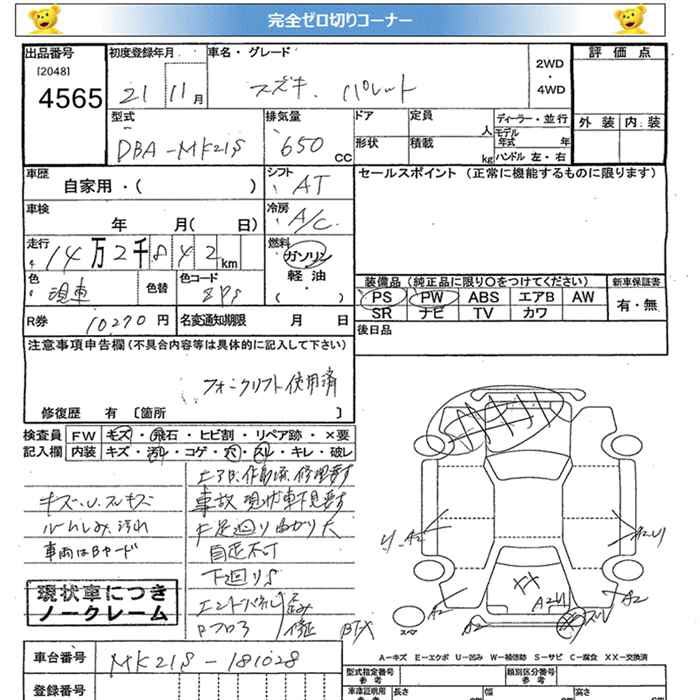 完全ゼロ切りコーナー
出品番号 初度登録年月 車名・グレード 評価点
[2048]
4565 21 11月 スズキ. パレット 2WD・4WD
型式 排気量 ドア 定員 人 ディーラー・並行 外装 内装
DBA-MK21S 650 CC 形状 積載 kg モデル年式 年
ハンドル 左・右
車歴 シフト セールスポイント (正常に機能するものに限ります)
自家用・( ) AT
車検 冷房
年 月( 日) A/C
走行 燃料
14万2千842km ガソリン
軽油
( )
色 色替 色コード 装備品 (純正品に限り○をつけてください) 新車保証書
現車 ZPS PS PW ABS エアB AW 有・無
R券 10270円 名変通知期限 月 日 SR ナビ TV カワ
注意事項申告欄 (不具合内容等は具体的に記入して下さい) 後日品
フォークリフト使用済
修復歴 有 〔箇所 〕
検査員 FW キズ・飛石・ヒビ割・リペア跡・×要
記入欄 内装 キズ・汚レ・コゲ・穴・スレ・キレ・破レ
キズ.U.スレキズ 事故現状車下見要す
ルームしみ.汚れ 足廻り曲がり大
車両はBヤード 自走不可
下廻りS
現状車につき
ノークレーム
エンドパネル 歪み
Pフロア 修 BTX
U A2 A2 U
A2 A2U スレ A2
スペ A2
A-キズ E-エクボ U-凹み W-補修跡 S-サビ C-腐食 XX-交換済
車台番号 MK21S-181028 型式指定番号 参考 類別区分番号 参考
登録番号 車庫証明用 参考 長さ 幅 高さ